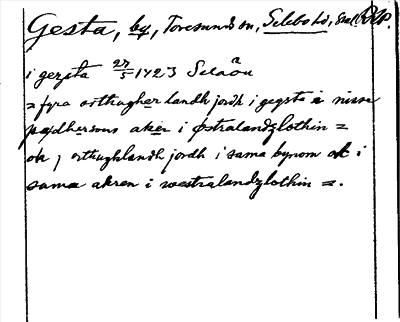 Gesta, by, Toresunds sn, Selebo hd,
i gerzta 27/5 1423 Selaön
= fyra örthugher landh jordh i gegsta i nisse
pædhersons aker i østralandzlothin =
ok j örthughlandh jordh i sama bynom ok i
sama akren i westralandzlothin =.